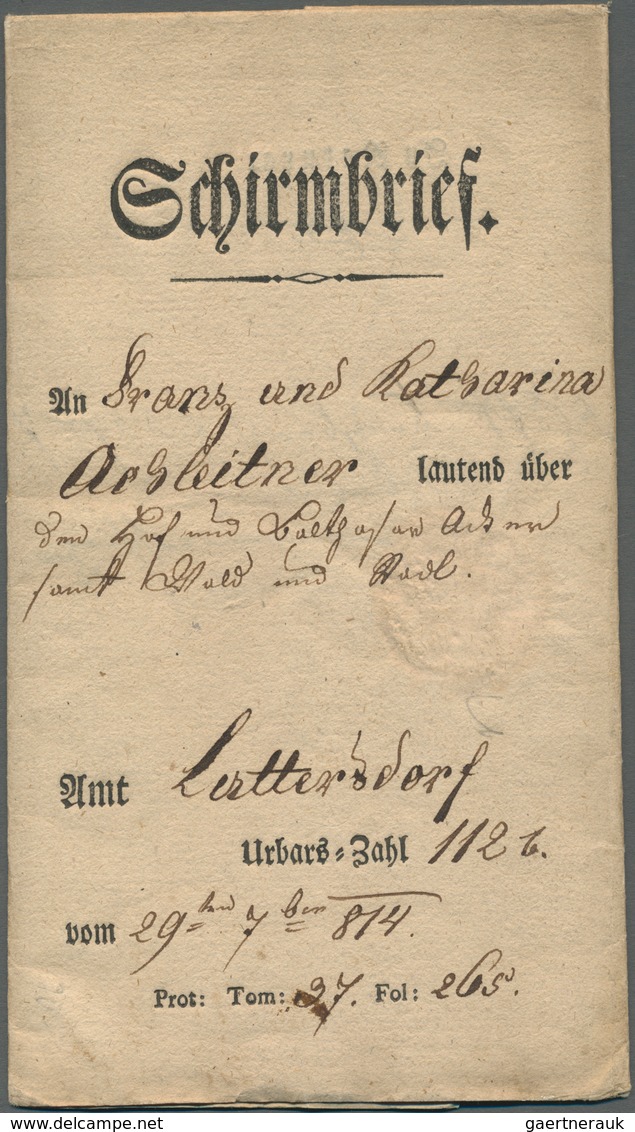 Schirmbrief.
An Franz und Katharina
Achleitner lautend über
den Hof und Balthasar Acker
samt Wald und Stadl.
Amt Lattersdorf
Urbars-Zahl 112 b.
vom 29ten 7ber 814.
Prot: Tom: 37. Fol: 265.
www.delcampe.net
gaertnerauk